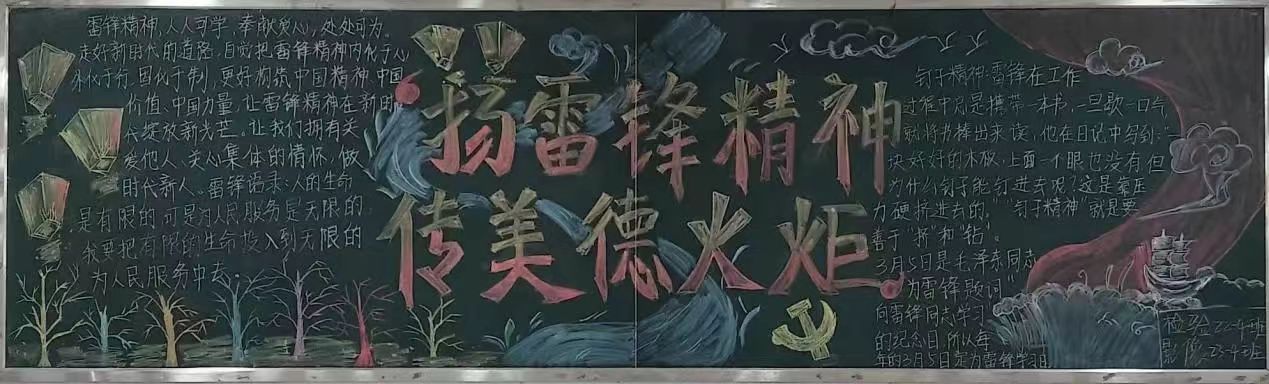 雷锋精神,人人可学,奉献爱心,处处可为。
走好新时代的道路,自觉把雷锋精神内化于心
外化于行,固化于制,更好构筑中国精神、中国
价值、中国力量,让雷锋精神在新的
代绽放新光芒。让我们拥有关
爱他人、关心集体的情怀,做
时代新人。雷锋语录:人的生命
是有限的,可是为人民服务是无限的,
我要把有限的生命投入到无限的
为人民服务中去。
扬雷锋精神
传美德火炬
钉子精神:雷锋在工作
过程中只是携带一本书,一旦歇一口气,
就将书捧出来读,他在日记中写到:
块好好的木板,上面一个眼也没有但
为什么钉子能钉进去呢?这是靠压
力硬挤进去的,“钉子精神”就是要
善于“挤”和“钻”。
3月5日是毛泽东同志
为雷锋题词
向雷锋同志学习
的纪念日,所以每
年的3月5日定为雷锋学习日
检验22-4班
影像23-4班